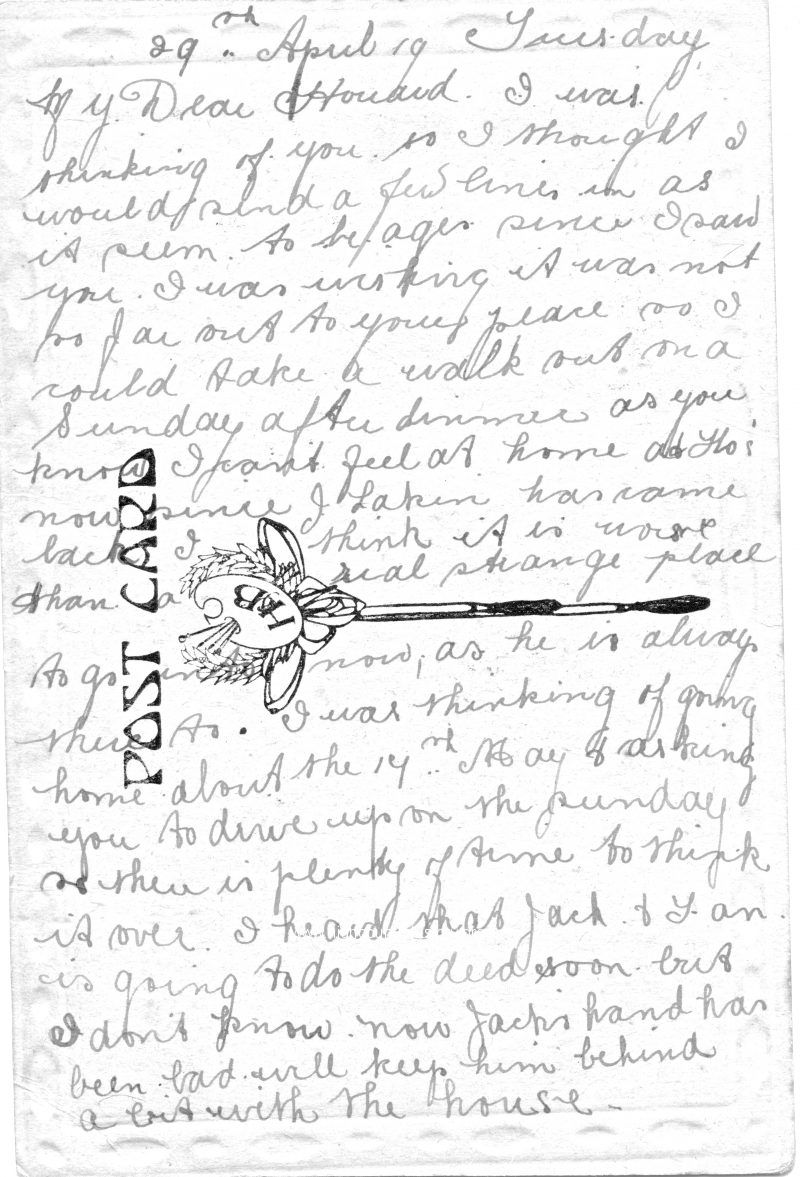 29.th April 19 Tuesday
My Dear Howard. I was
thinking of you. so I thought I
would send a few lines in as
it seem. to be. ages. since I saw
you. I was wishing it was not
so far out to your place so I
could take a walk out on a
Sunday after dinner as you
know I cant feel at home at
now since J Laken has came
back I think it is worse
than a real strange place
to go into now, as he is always
there to. I was thinking of going
home about the 17th May & asking
you to drive up on the sunday
so there is plenty of time to think
it over. I heard that Jack. &
is going to do the deed soon. but
I don't know. now Jacks hand has
been bad. will keep him behind
a bit with the house -
POST CARD